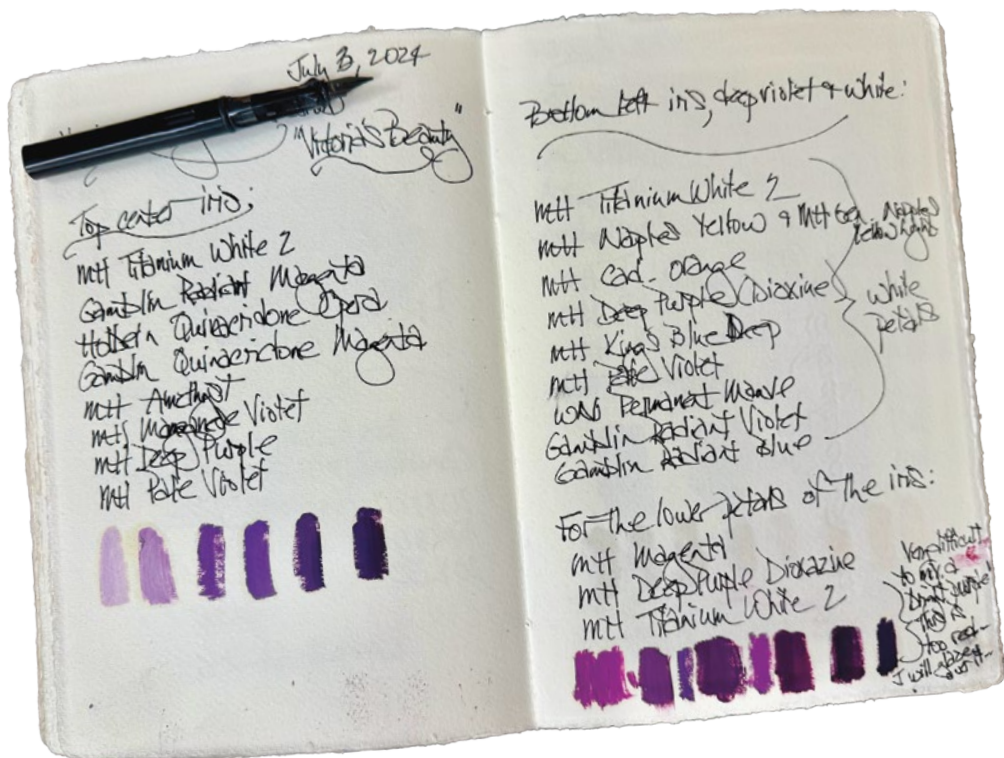 July 3, 2024
"Victoria's Beauty"
Top center iris:
MH Titanium White 2
Gamblin Radiant Magenta
Holbein Quinacridone Opera
Gamblin Quinacridone Magenta
MH Amethyst
MH Manganese Violet
MH Deep Purple
MH Pale Violet
Bottom left iris, deep violet & white:
MH Titanium White 2
MH Naples Yellow & MH Naples
Yellow Light
MH Cad. Orange
MH Deep Purple Dioxine
MH Kings Blue Deep
MH Pale Violet
WN Permanent Mauve
Gamblin Radiant Violet
Gamblin Radiant Blue
white
petals
For the lower petals of the iris:
MH Magenta
MH Deep Purple Dioxazine
MH Titanium White 2
Very difficult
to mix a
bright purple
This is
too red-
I will glaze
over it-